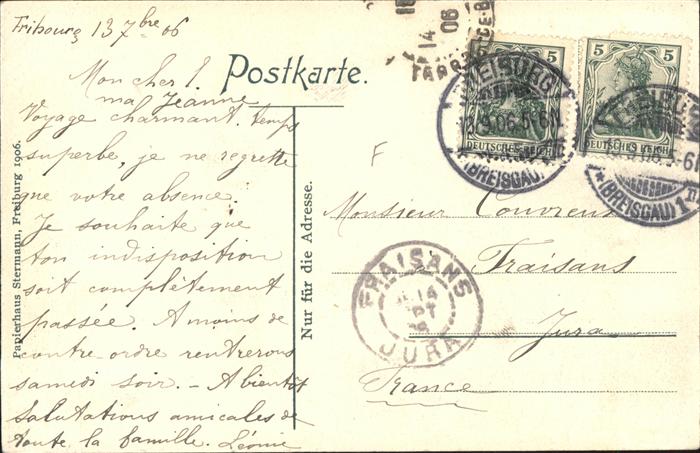 Fribourg 13 7bre 06
Postkarte.
Mon cher
ma Jeanne
Voyage charmant. temps
superbe, je ne regrette
que votre absence.
Je souhaite que
ton indisposition
soit complètement
passée. A moins de
contre ordre rentrerons
samedi soir. - A bientôt
Salutations amicales de
toute la famille. Léonie
Papierhaus Stermann, Freiburg 1906.
Nur für die Adresse.
14
06
5
5
5
DEUTSCHES REICH
DEUTSCHES REICH
FREIBURG
9.06.5-6N
(BREISGAU)
FREIBURG
5-6N
*(BREISGAU)1
F
Monsieur Couvreux
Fraisans
Jura
France
FRAISANS
14
JURA